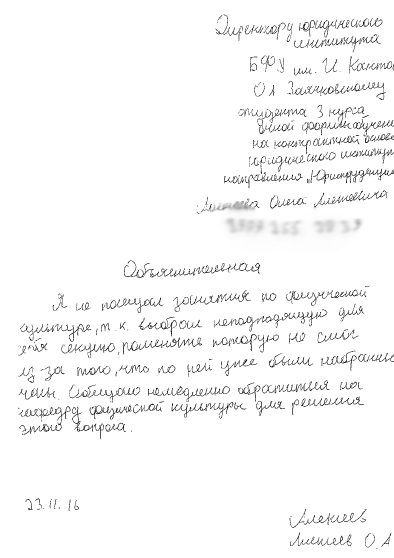 Директору юридического
института
БФУ им. И. Канта
О.А. Заячковскому
студента 3 курса
очной формы обучения
на контрактной основе
юридического института
направления "Юриспруденция"
Алексеева Олега Алексеевича
Объяснительная
Я не посещал занятия по физической
культуре, т.к. выбрал неподходящую для
себя секцию, поменять которую не смог
из за того, что по ней уже были набраны
Обещаю немедленно обратиться на
кафедру физической культуры для решения
этого вопроса.
23.11.16
Алексеев
Алексеев О.А